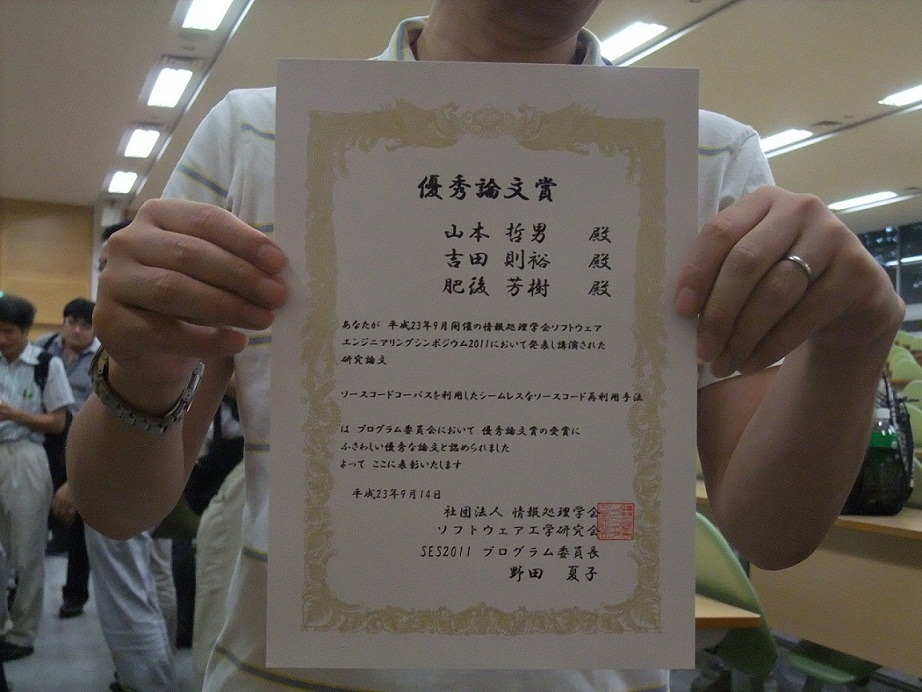 優秀論文賞
山本 哲男 殿
吉田 則裕 殿
肥後 芳樹 殿
あなたが 平成23年9月開催の情報処理学会ソフトウェア
エンジニアリングシンポジウム2011において発表し講演された
研究論文
ソースコードコーパスを利用したシームレスなソースコード再利用手法
は プログラム委員会において 優秀論文賞の受賞に
ふさわしい優秀な論文と認められました
よって ここに表彰いたします
平成23年9月14日
社団法人 情報処理学会
ソフトウェア工学研究会
SES2011 プログラム委員長
野田 夏子